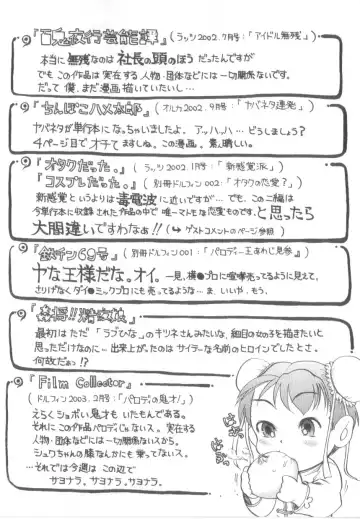 『百鬼夜行芸能譚』(ラッツ2002.7月号:「アイドル無残」)
本当に無残なのは社長の頭のほうだったんですが
でもこの作品は実在する人物・団体などには一切関係ないです。
だって僕、まだ漫画描いていたいし…
『ちんぽこハメ太郎』(オルカ2002.9月号:「ヤバネタ連発」)
ヤバネタが単行本になっちゃいましたよ。アッハッハ…どうしましょう?
4ページ目でオチてますしね、この漫画。素晴しい。
『オタクだった。』(ラッツ2002.1月号:「新感覚派」)
『コスプレだった。』(別冊ドルフィン002:「オタクの恋愛?」)
新感覚というよりは毒電波に近いですが…でも、この二編は
今単行本に収録された作品の中で唯一マトモな恋愛ものです。と思ったら
大間違いですわなぁ!!(↳ゲストコメントのページ参照)
『鉄チン69号』(別冊ドルフィン001:「パロディー王あわじ見参」)
ヤな王様だな。オイ。一見、横●プロに喧嘩売ってるように見えて、
さりげなくダイ●ミックプロにも売ってるような…ま、いいや、もう。
最初はただ「ラブひな」のキツネさんみたいな、細目の女の子を描きたいと
思っただけなのに…出来上がったのはサイテーな名前のヒロインでしたとさ。
何故だぁっ!?
『Film Collector』
(ドルフィン2003.2月号:「パロディの鬼才!」)
えらくショボい鬼才もいたもんである。
それにこの作品パロディじゃないス。実在する
人物・団体などには一切関係ないスから。
シュワちゃんの膝なんかにも乗ってないス。
…それでは今週はこの辺で
サヨナラ、サヨナラ、サヨナラ。
はぐっ
はぐっ